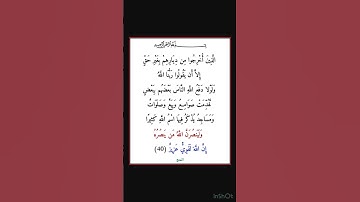 الَّذِينَ أُخْرِجُوا مِن دِيَارِهِمْ بِغَيْرِ حَقٍّ
إِلَّا أَن يَقُولُوا رَبُّنَا اللَّهُ
وَلَوْلَا دَفْعُ اللَّهِ النَّاسَ بَعْضَهُم بِبَعْضٍ
لَّهُدِّمَتْ صَوَامِعُ وَبِيَعٌ وَصَلَوَاتٌ
وَمَسَاجِدُ يُذْكَرُ فِيهَا اسْمُ اللَّهِ كَثِيرًا
وَلَيَنصُرَنَّ اللَّهُ مَن يَنصُرُهُ
إِنَّ اللَّهَ لَقَوِيٌّ عَزِيزٌ (40)
الحج
InShOt